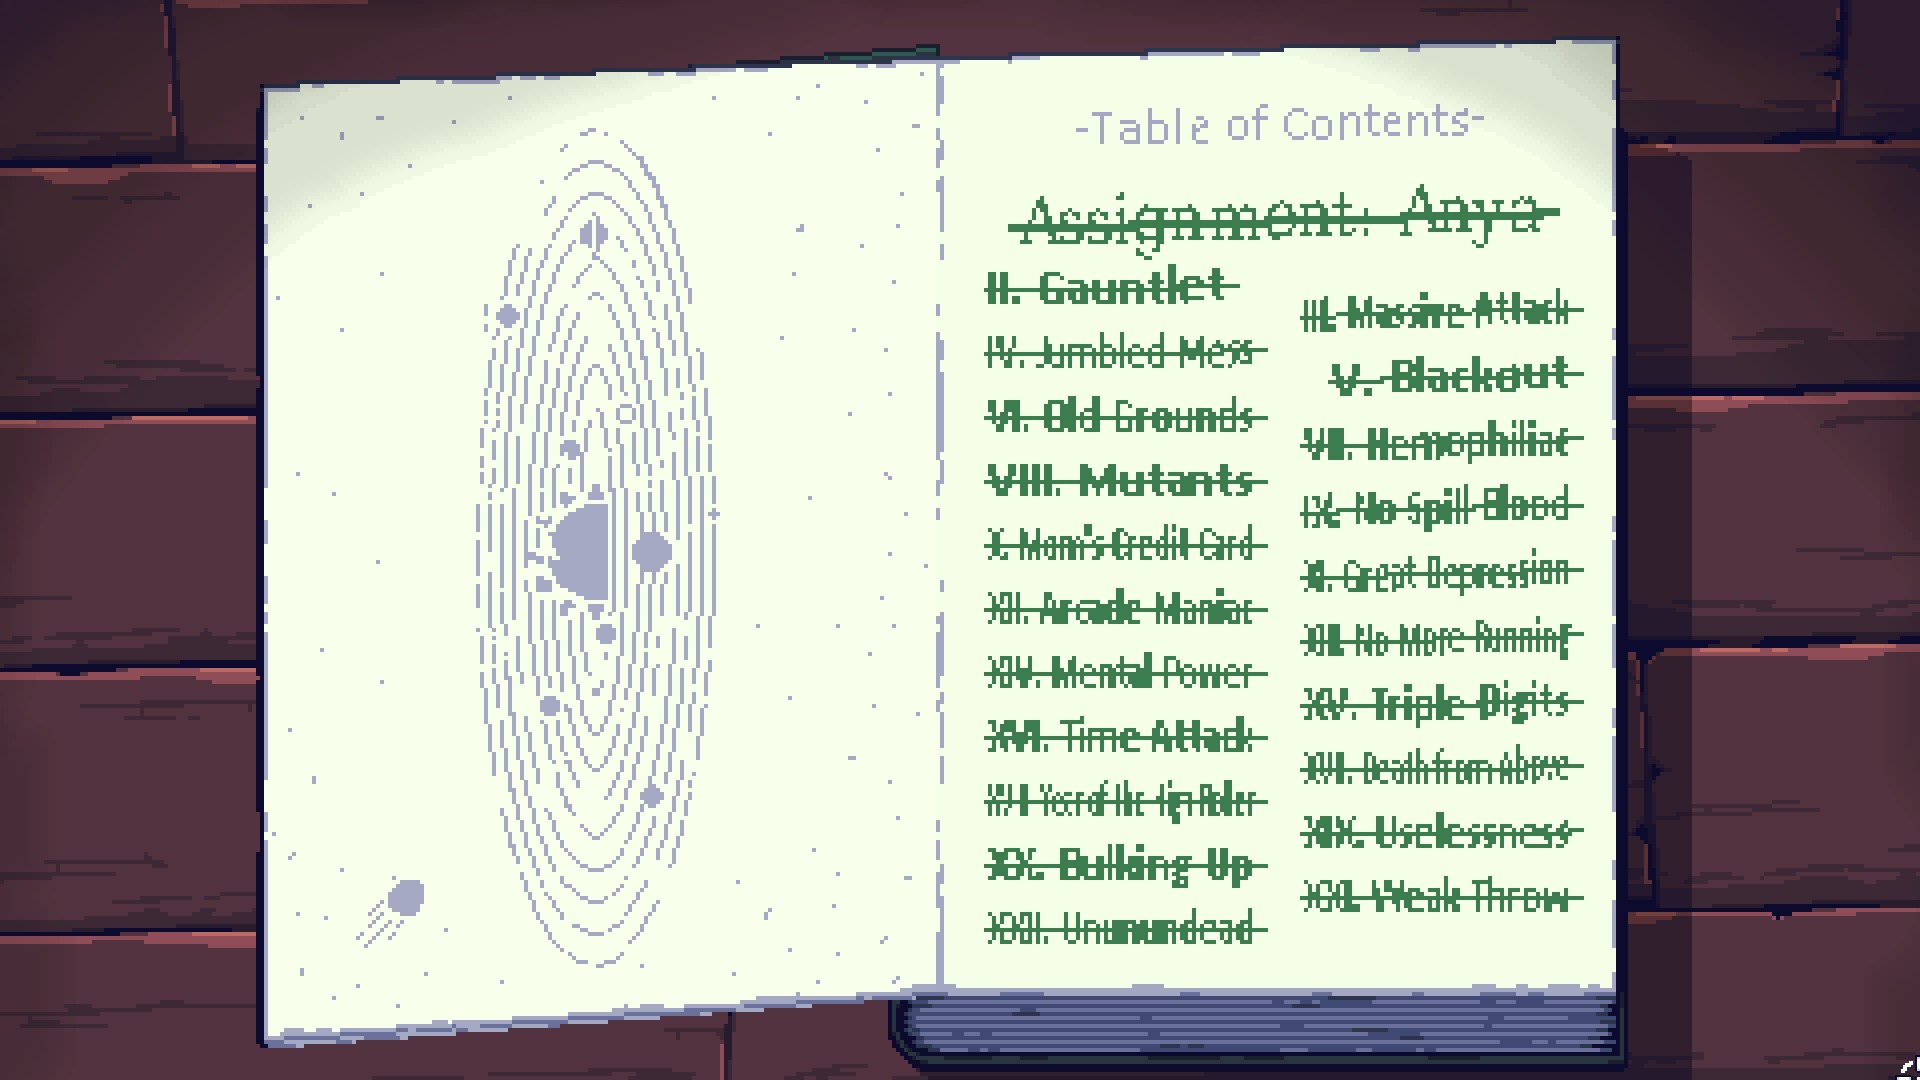 -Table of Contents-
Assignment: Anya
II. Gauntlet
III. Massive Attack
IV. Jumbled Mess
V. Blackout
VI. Old Grounds
VII. Hemophiliac
VIII. Mutants
IX. No Spill Blood
X. Mom's Credit Card
XI. Great Depression
XII. Arcade Maniac
XIII. No More Running
XIV. Mental Power
XV. Triple Digits
XVI. Time Attack
XVII. Death from Above
XVIII. Year of the
XIX. Uselessness
XX. Bulking Up
XXI. Weak Throw
XXII. Unununundead